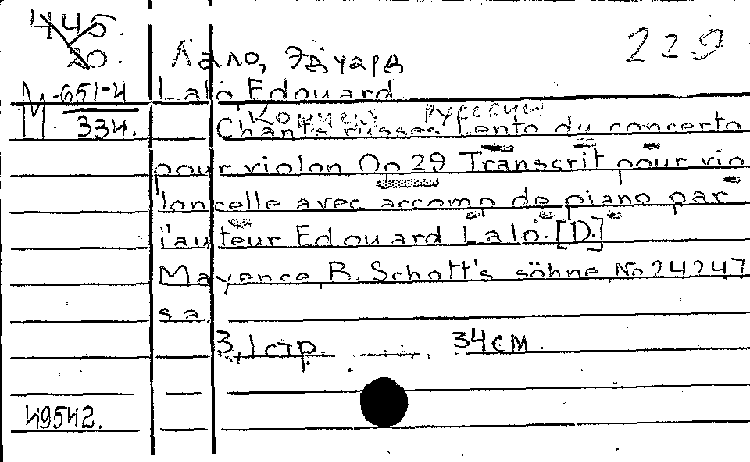 445.
20.
Лало, Эдуард
229
М-651-4
334.
Lalo Edouard
русский
Chants russes Lento du concerto
pour violon Op 29 Transcrit pour vio
loncelle avec accomp de piano par
l'auteur Edouard Lalo. [D.]
Mayence, B. Schott's söhne, No 24247
s a
3,1 стр. 34 см
49542.